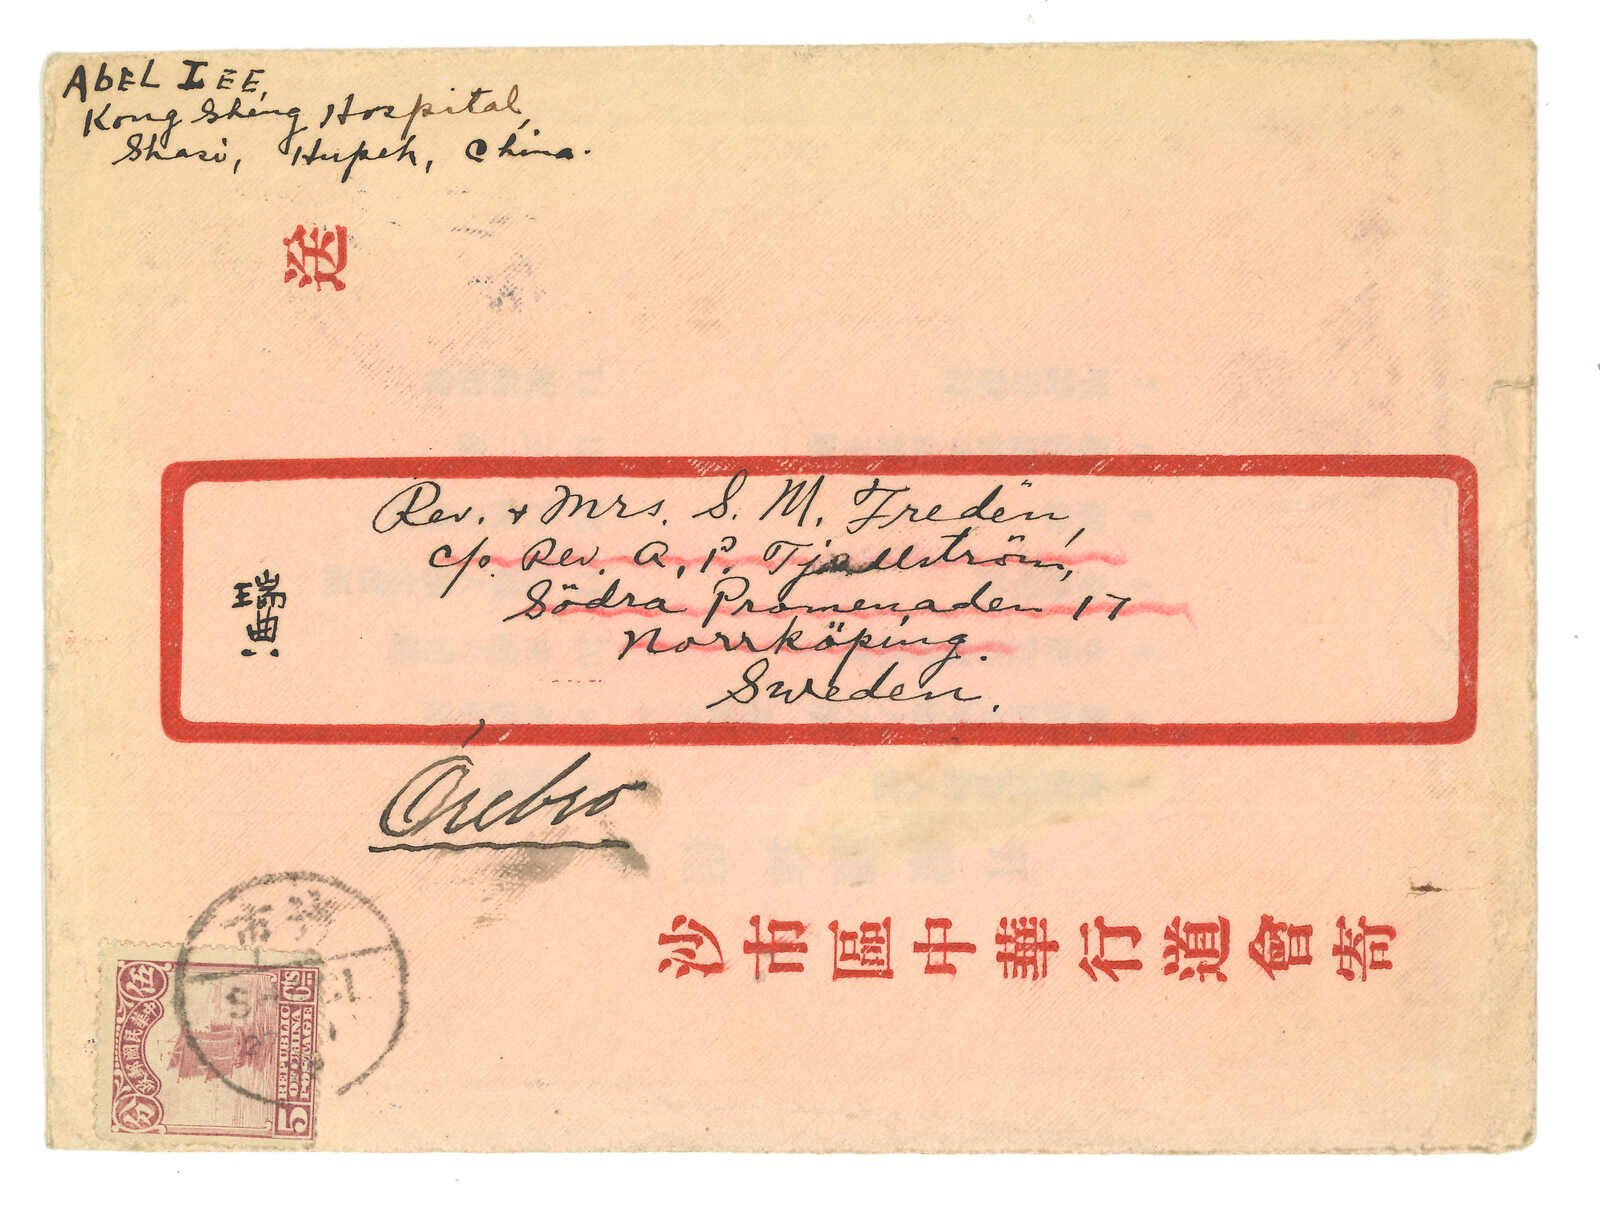 ABEL LEE,
Kong Sheng Hospital,
Shasi, Hupeh, China.
送
Rev. + Mrs. S. M. Fredën,
c/o. Rev. A. P. Tjællström,
Södra Promenaden 17
Norrköping.
Sweden.
瑞典
Örebro
沙市區中華行道會寄
沙市
SHASI
中華民國郵政
伍分
5 CTS
REPUBLIC
OF CHINA
POSTAGE